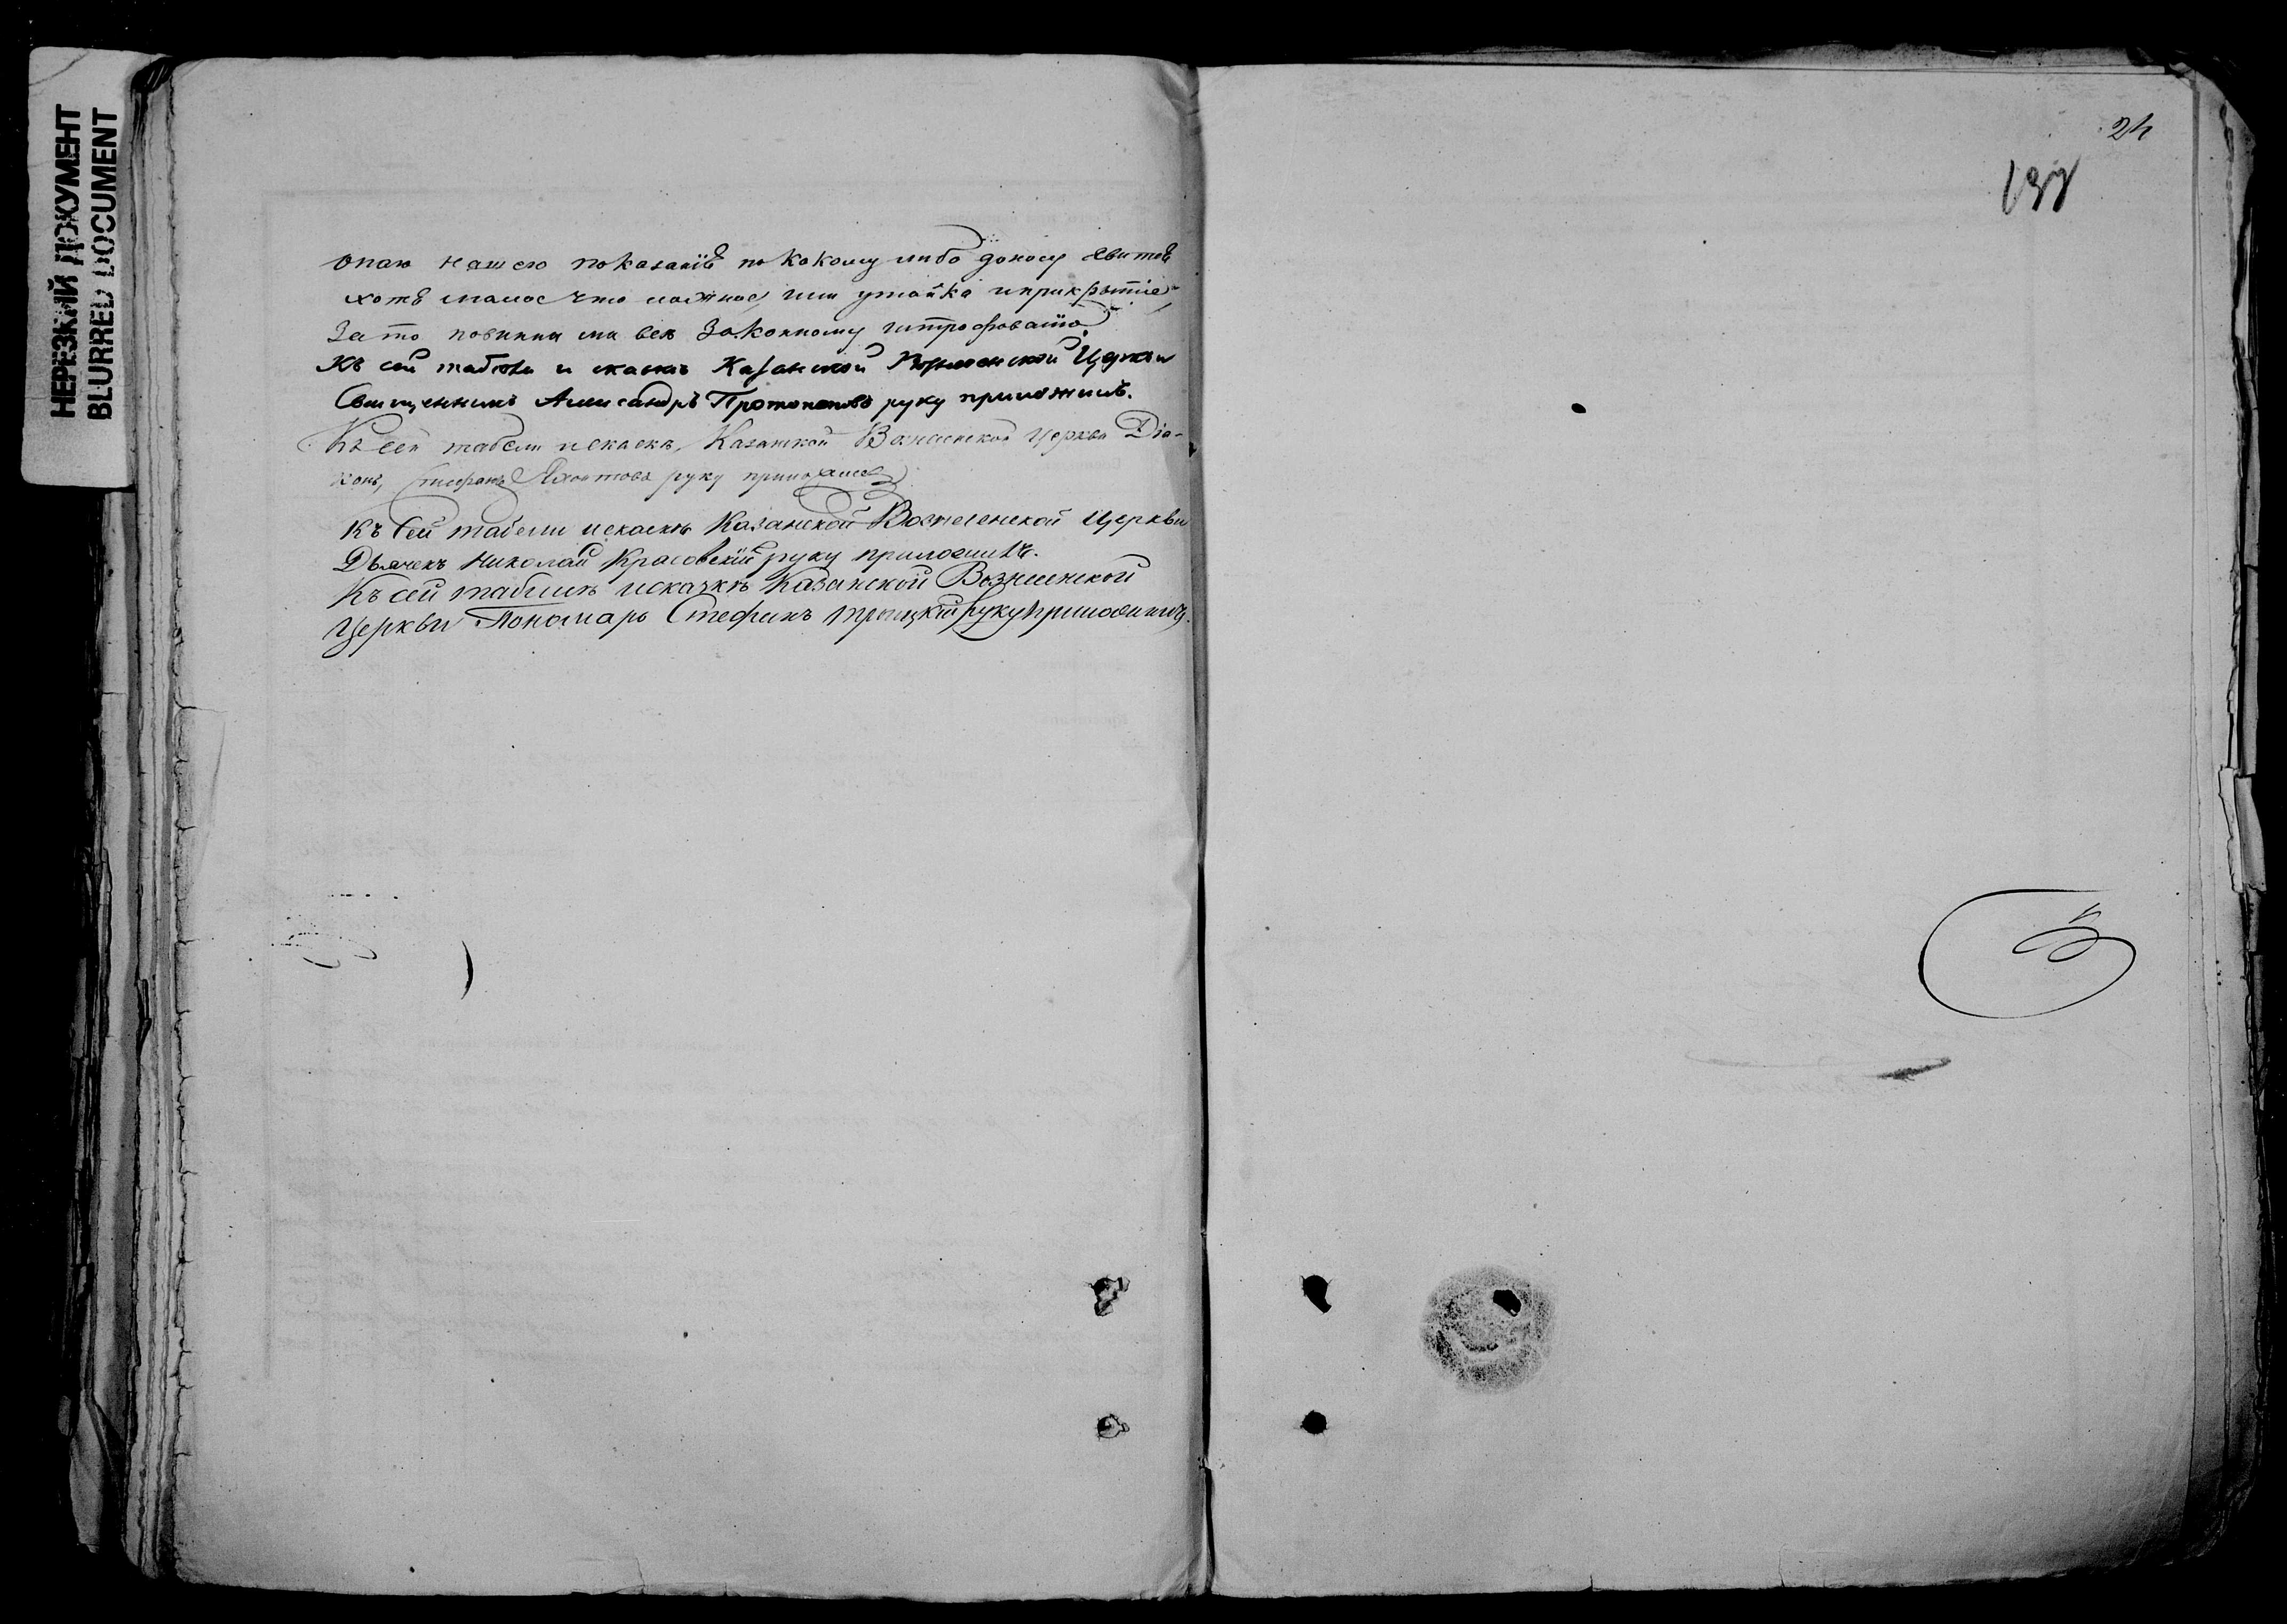 НЕРЕЗКИЙ ДОКУМЕНТ
BLURRED DOCUMENT
24
нашею показанiѣ по какому либо доносу явится
хотя малое что ложное, или утайка и прикрытiе
За то повинны мы всѣ Законному штрофованiю.
Къ сей табели и скаскѣ Казанской Вознесенской Церкви
Священникъ Александръ Протопоповъ руку приложилъ.
Къ сей табели и скаскѣ, Казанской Вознесенской Церкви Дiа-
конъ, Стефанъ Яхонтовъ руку приложилъ
Къ сей табели и скаскѣ Казанской Вознесенской Церкви
Дьячекъ Николай Красовскiй руку приложилъ.
Къ сей табели и сказкѣ Казанской Вознесенской
Церкви Пономарь Стефанъ Троицкiй руку приложилъ.